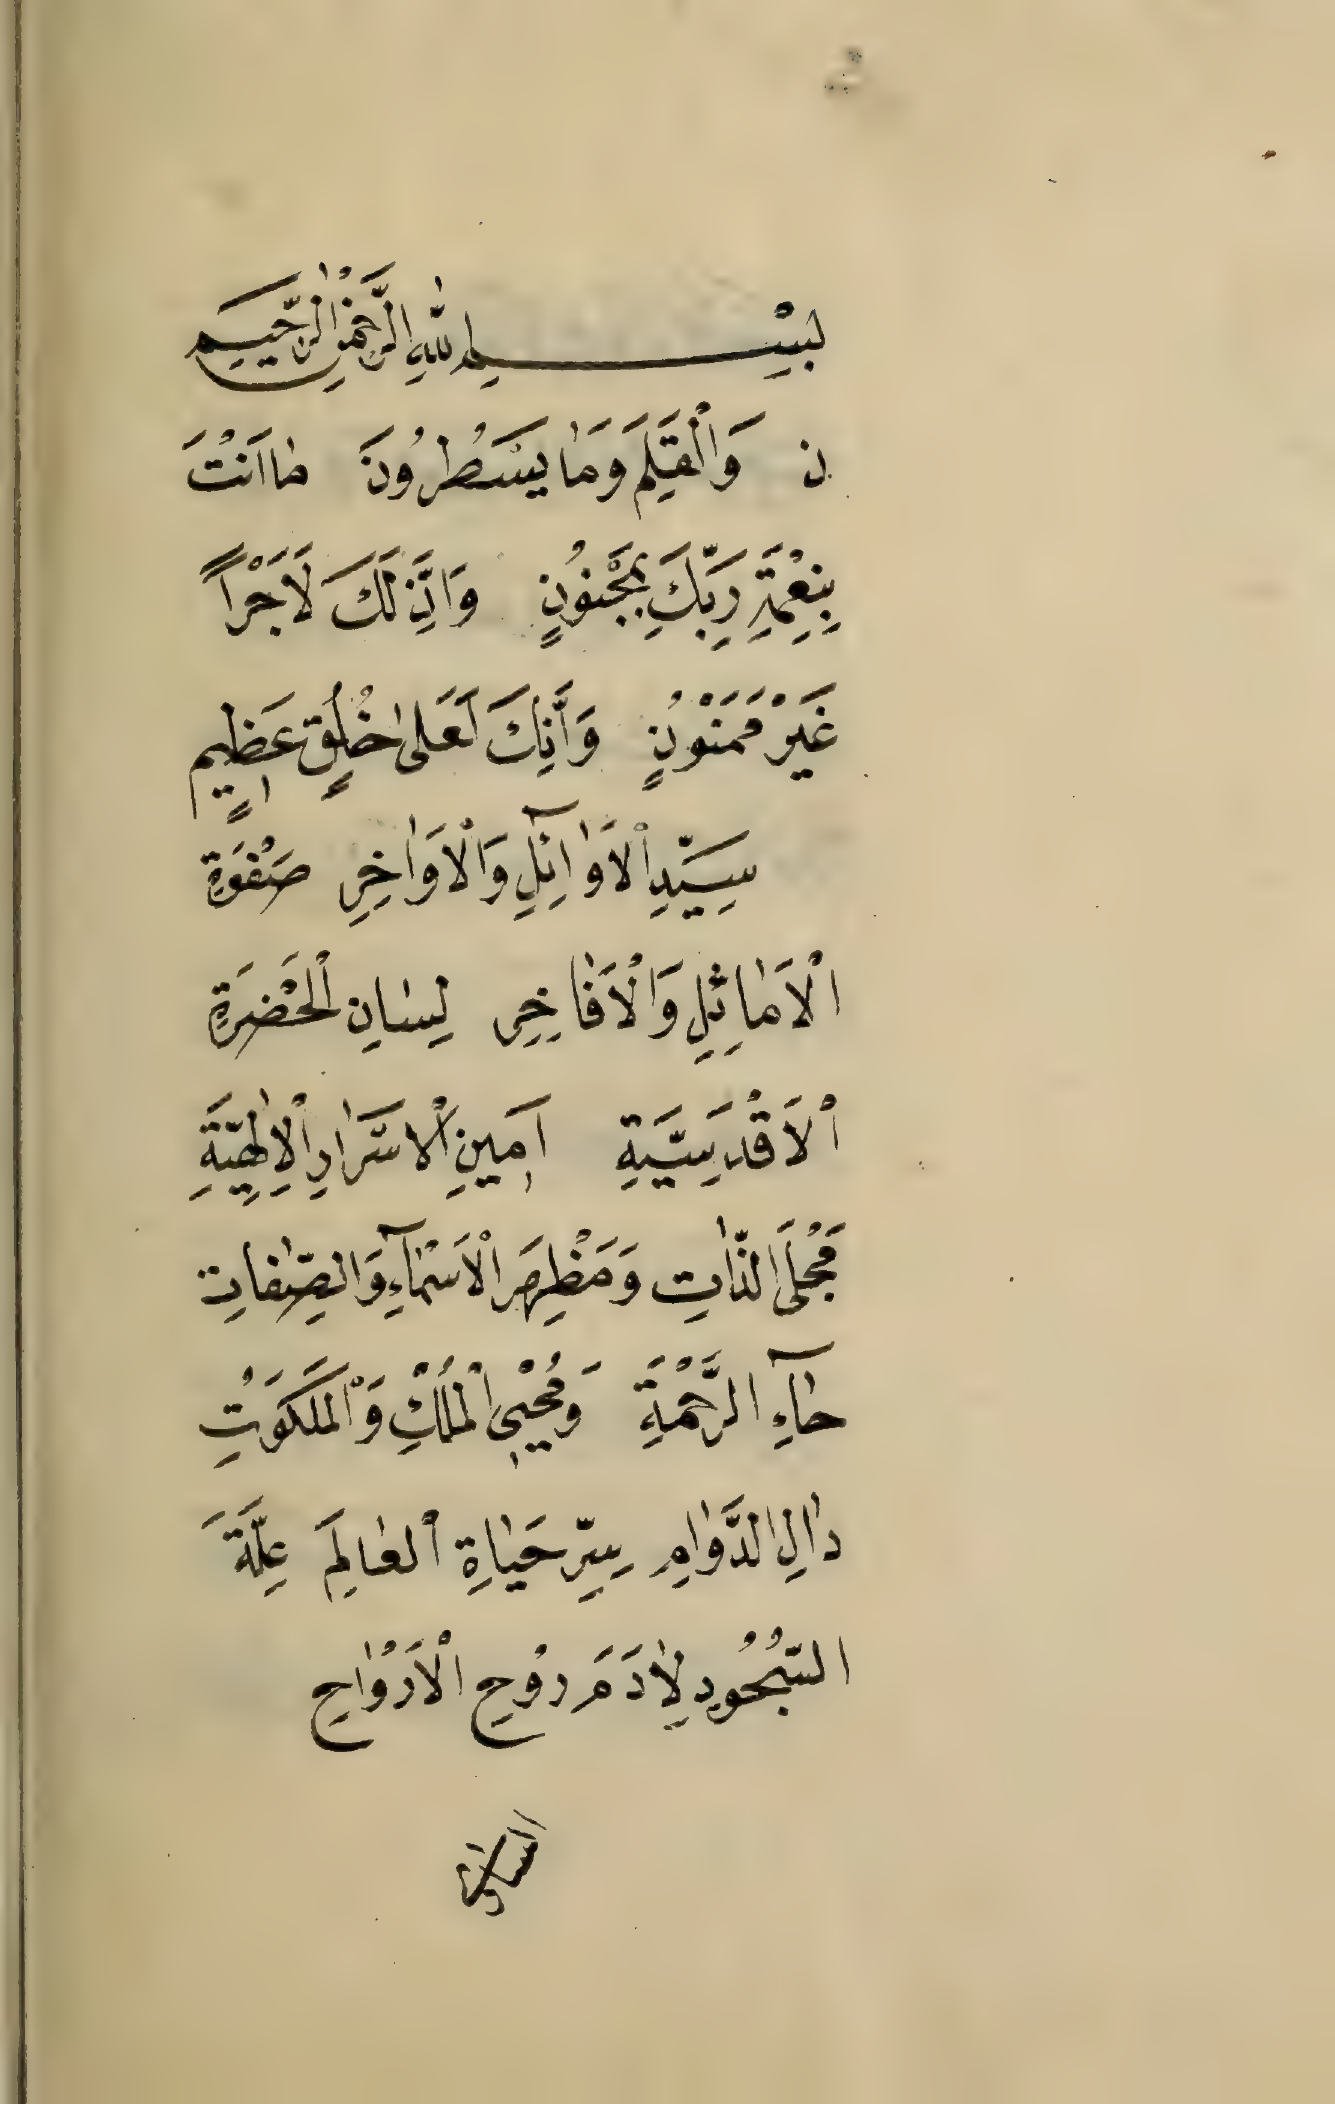 بِسْمِ اللهِ الرَّحْمٰنِ الرَّحِيمِ
ن وَالْقَلَمِ وَمَا يَسْطُرُونَ مٰا اَنْتَ
بِنِعْمَةِ رَبِّكَ بِمَجْنُونٍ وَاِنَّ لَكَ لَاَجْراً
غَيْرَ مَمْنُونٍ وَاِنَّكَ لَعَلىٰ خُلُقٍ عَظٖيمٍ
سَيِّدِ الْاَوٰآئِلِ وَالْاَوٰاخِرِ صَفْوَةِ
الْاَمٰاثِلِ وَالْاَفٰاخِرِ لِسٰانِ الْحَضْرَةِ
الْاَقْدَسِيَّةِ اَمٖينِ الْاَسْرٰارِ الْاِلٰهِيَّةِ
مَجْلَى الذّٰاتِ وَمَظْهَرِ الْاَسْمٰآءِ وَالصِّفٰاتِ
حٰآءِ الرَّحْمَةِ وَمُحْيِي الْمُلْكِ وَالْمَلَكُوتِ
دٰالِ الدَّوٰامِ سِرِّ حَيٰاةِ الْعٰالَمِ عِلَّةَ
السُّجُودِ لِاٰدَمَ رُوحِ الْاَرْوٰاحِ